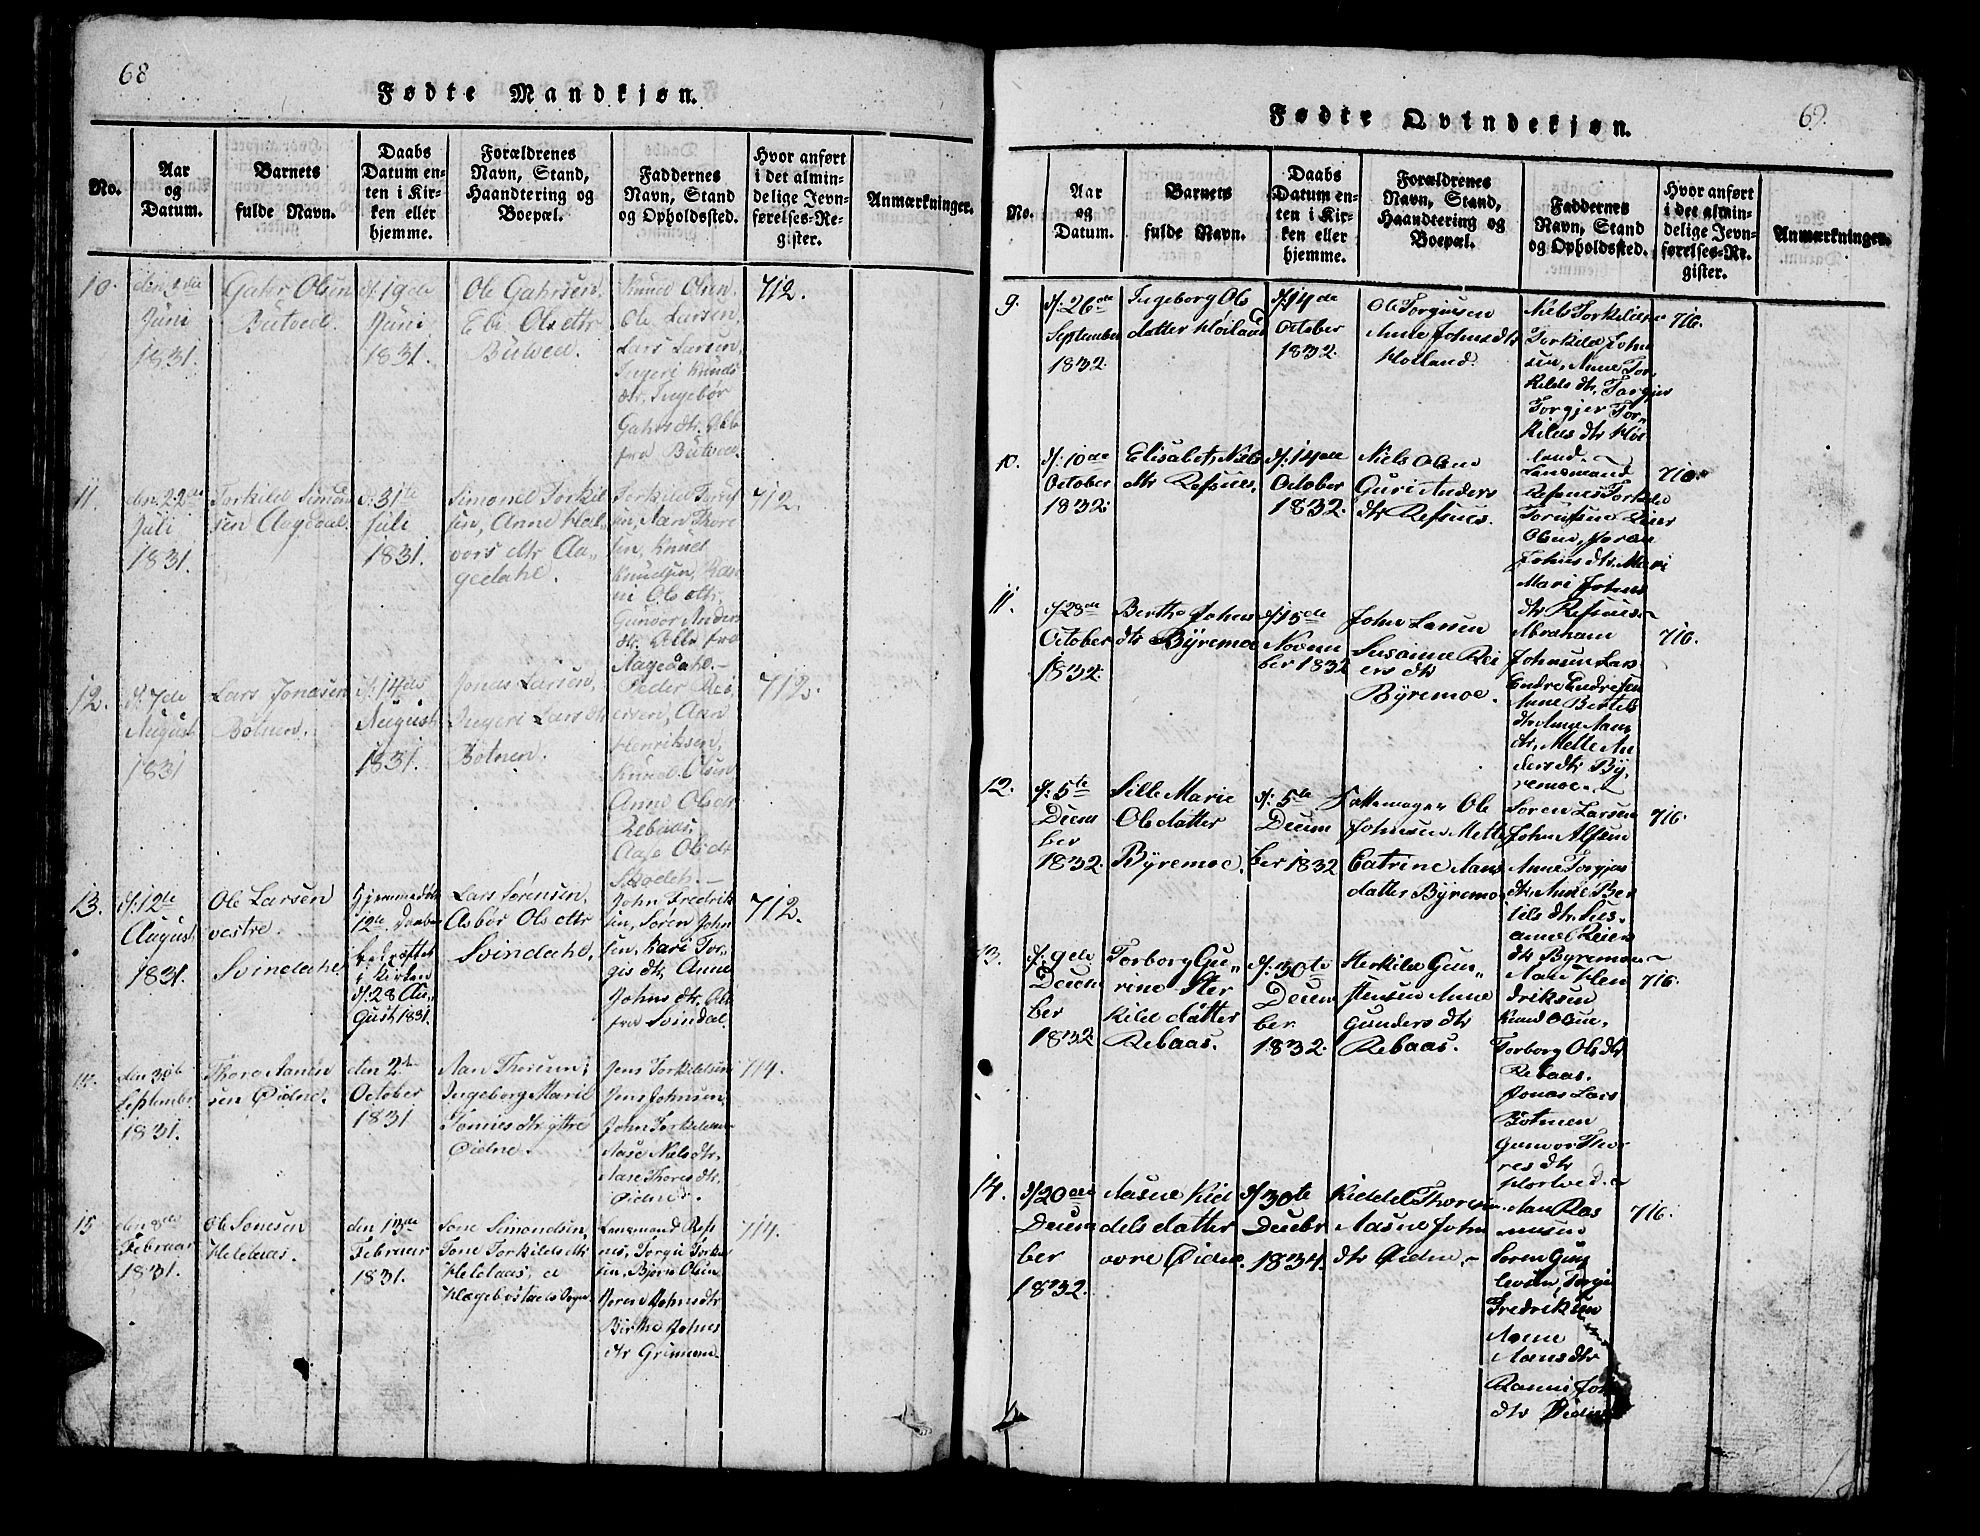 68
Fødte Mandkjøn.
No.
Aar
og
Datum.
Barnets
fulde Navn.
Daabs
Datum en-
ten i Kir-
ken eller
hjemme.
Forældrenes
Navn, Stand,
Haandtering og
Boepæl.
Faddernes
Navn, Stand
og Opholdssted.
Hvor anført
i det almin-
delige Jevn-
førelses-Re-
gister.
Anmærkninger.
10.
Juni
1831.
Gahr Olsen
Butved.
d: 19de
Juni
1831.
Ole Gahrsen.
Eli Ols dtr
Butved.
Knud Olsen.
Ole Larsen,
Lars Larsen,
Ingeri Knuds
dtr, Ingebør
Gahrs dtr. Alle
fra Butved.
712.
11.
den 22de
Juli
1831.
Torkild Simon
sen Aagedal.
d: 31te
Juli
1831.
Simond Torkil
sen, Anne Hal
vors dtr Aa„
gedahl.
sen, Aan Thore
sen, Knud
Knudsen,
Ols dtr,
Gunvor Anders
dtr. Alle fra
Aagedahl.
712.
12.
d: 7de
August
1831
Lars Jonasen
Botnen.
d: 14de
August
1831.
Jonas Larsen,
Ingeri Lars dtr
Botnen.
Peder Rei
ersen, Aan
Henriksen,
Knud Olsen
Anne Ols dtr
Rebaas.
Aase Ols dtr
712.
13.
d: 12te
August
1831.
Ole Larsen
vestre
Svindahl.
Hjemmedøbt
12te Daaben
bekræftet
i Kirken
d: 28 Au„
gust 1831.
Lars Sørensen,
Asbør Ols dtr
Svindahl.
John Fredrik
sen, Søren John
sen, Kari Tor„
gis dtr, Anne
Johns dtr. Alle
fra Svindal.
712.
14.
September
1831.
Thore Aanen
sen Øidne.
den 2de
October
1831
Aan Thorsen,
Ingeborg Marie
Tønnes dtr yttre
Øidne.
Jens Torkildsen
Jens Johnsen
John Torkildsen
Aase Niels dtr,
Aase Thores dtr.
Øidne.
714.
15
den 8de
Februar
1831.
Ole Sonesen
Helelaas.
den 13de
Februar
1831.
Sone Simondsen,
Tone Torkilds dtr
Helelaas, a
Hægebostads Sogn.
Lensmand Refs
nes, Torgie Torkil
sen, Bjørn Olsen
Joren Johns dtr
Birthe Johns
dtr Grimnem.
714.
69.
Fødte Qvindekjøn.
No.
Aar
og
Datum.
Barnets
fulde Navn.
Daabs
Datum en-
ten i Kir-
ken eller
hjemme.
Forældrenes
Navn, Stand,
Haandtering og
Boepæl.
Faddernes
Navn, Stand
og Opholdssted.
Hvor anført
i det almin-
delige Jevn-
førelses-Re-
gister.
Anmærkninger.
9.
d: 26de
September
1832.
Ingeborg Ols
datter Høiland
d: 14de
October
1832.
Ole Torgiusen
Anne Johns dtr
Holland.
Niels Torkildsen
Torkild John
sen, Anne Tor
kilds dtr, Torgjer
Torgjer Tor„
kilds dtr Høi
land.
716.
10.
d: 10de
October
1832.
Elisabet Niels
dtr Refsnes.
d: 14de
October
1832.
Niels Olsen
Guri Anders
dtr Refsnes.
Lensmand
Refsnes Torkild
Torufsen Reier
Olsen, Joran
Johns dtr, Mari
Mari Johns
dtr Refsnes
716.
11.
d 28de
October
1832.
Berthe Johns
dtr Byremoe
d: 15de
Novem
ber 1832
John Larsen
Susanne Rei
ers dtr
Byremoe.
Abraham
Johnsen Lars
Endre Endresen
Anne Bertels
dtr Anne Aans
dtr, Mette An
ders dtr By„
remoe.
716.
12.
d: 5te
Decem
ber
1832.
Sille Marie
Ols datter
Byremoe.
d: 5te
Decem
ber 1832
Fattemager Ole
Johnsen Mette
Catrine Aans
datter Byremoe.
Søren Larsen
John Alfsen
Anne Torgjus
dtr, Anne Ber
tels dtr, Sus„
anne Reiers
dtr Byremoe
716.
13.
d: 9de
Decem
ber
1832
Torborg Gu„
rine Ster
kild datter
Rebaas.
d: 30te
Decem
ber
1832.
Sterkild Gun„
stensen Anne
Gunders dtr
Rebaas.
Aan Hen
driksen
Knud Olsen,
Torborg Ols dtr
Rebaas.
Jonas Lars
Botnen
Gunvor Tho
res dtr
Hortved.
716.
14.
d 20de
Decem
ber
1832.
Aasne Kied
dels datter
øvre Øidne.
d/30te
Decebr
1834.
Kieddel Thoresen
Aasne John
dtr Øidne.
Aan Ras
musen
Søren Gun
levsen, Torgie
Fredriksen
Anne
Aans dtr
Rasmi Joh
dtr Øidne
716.